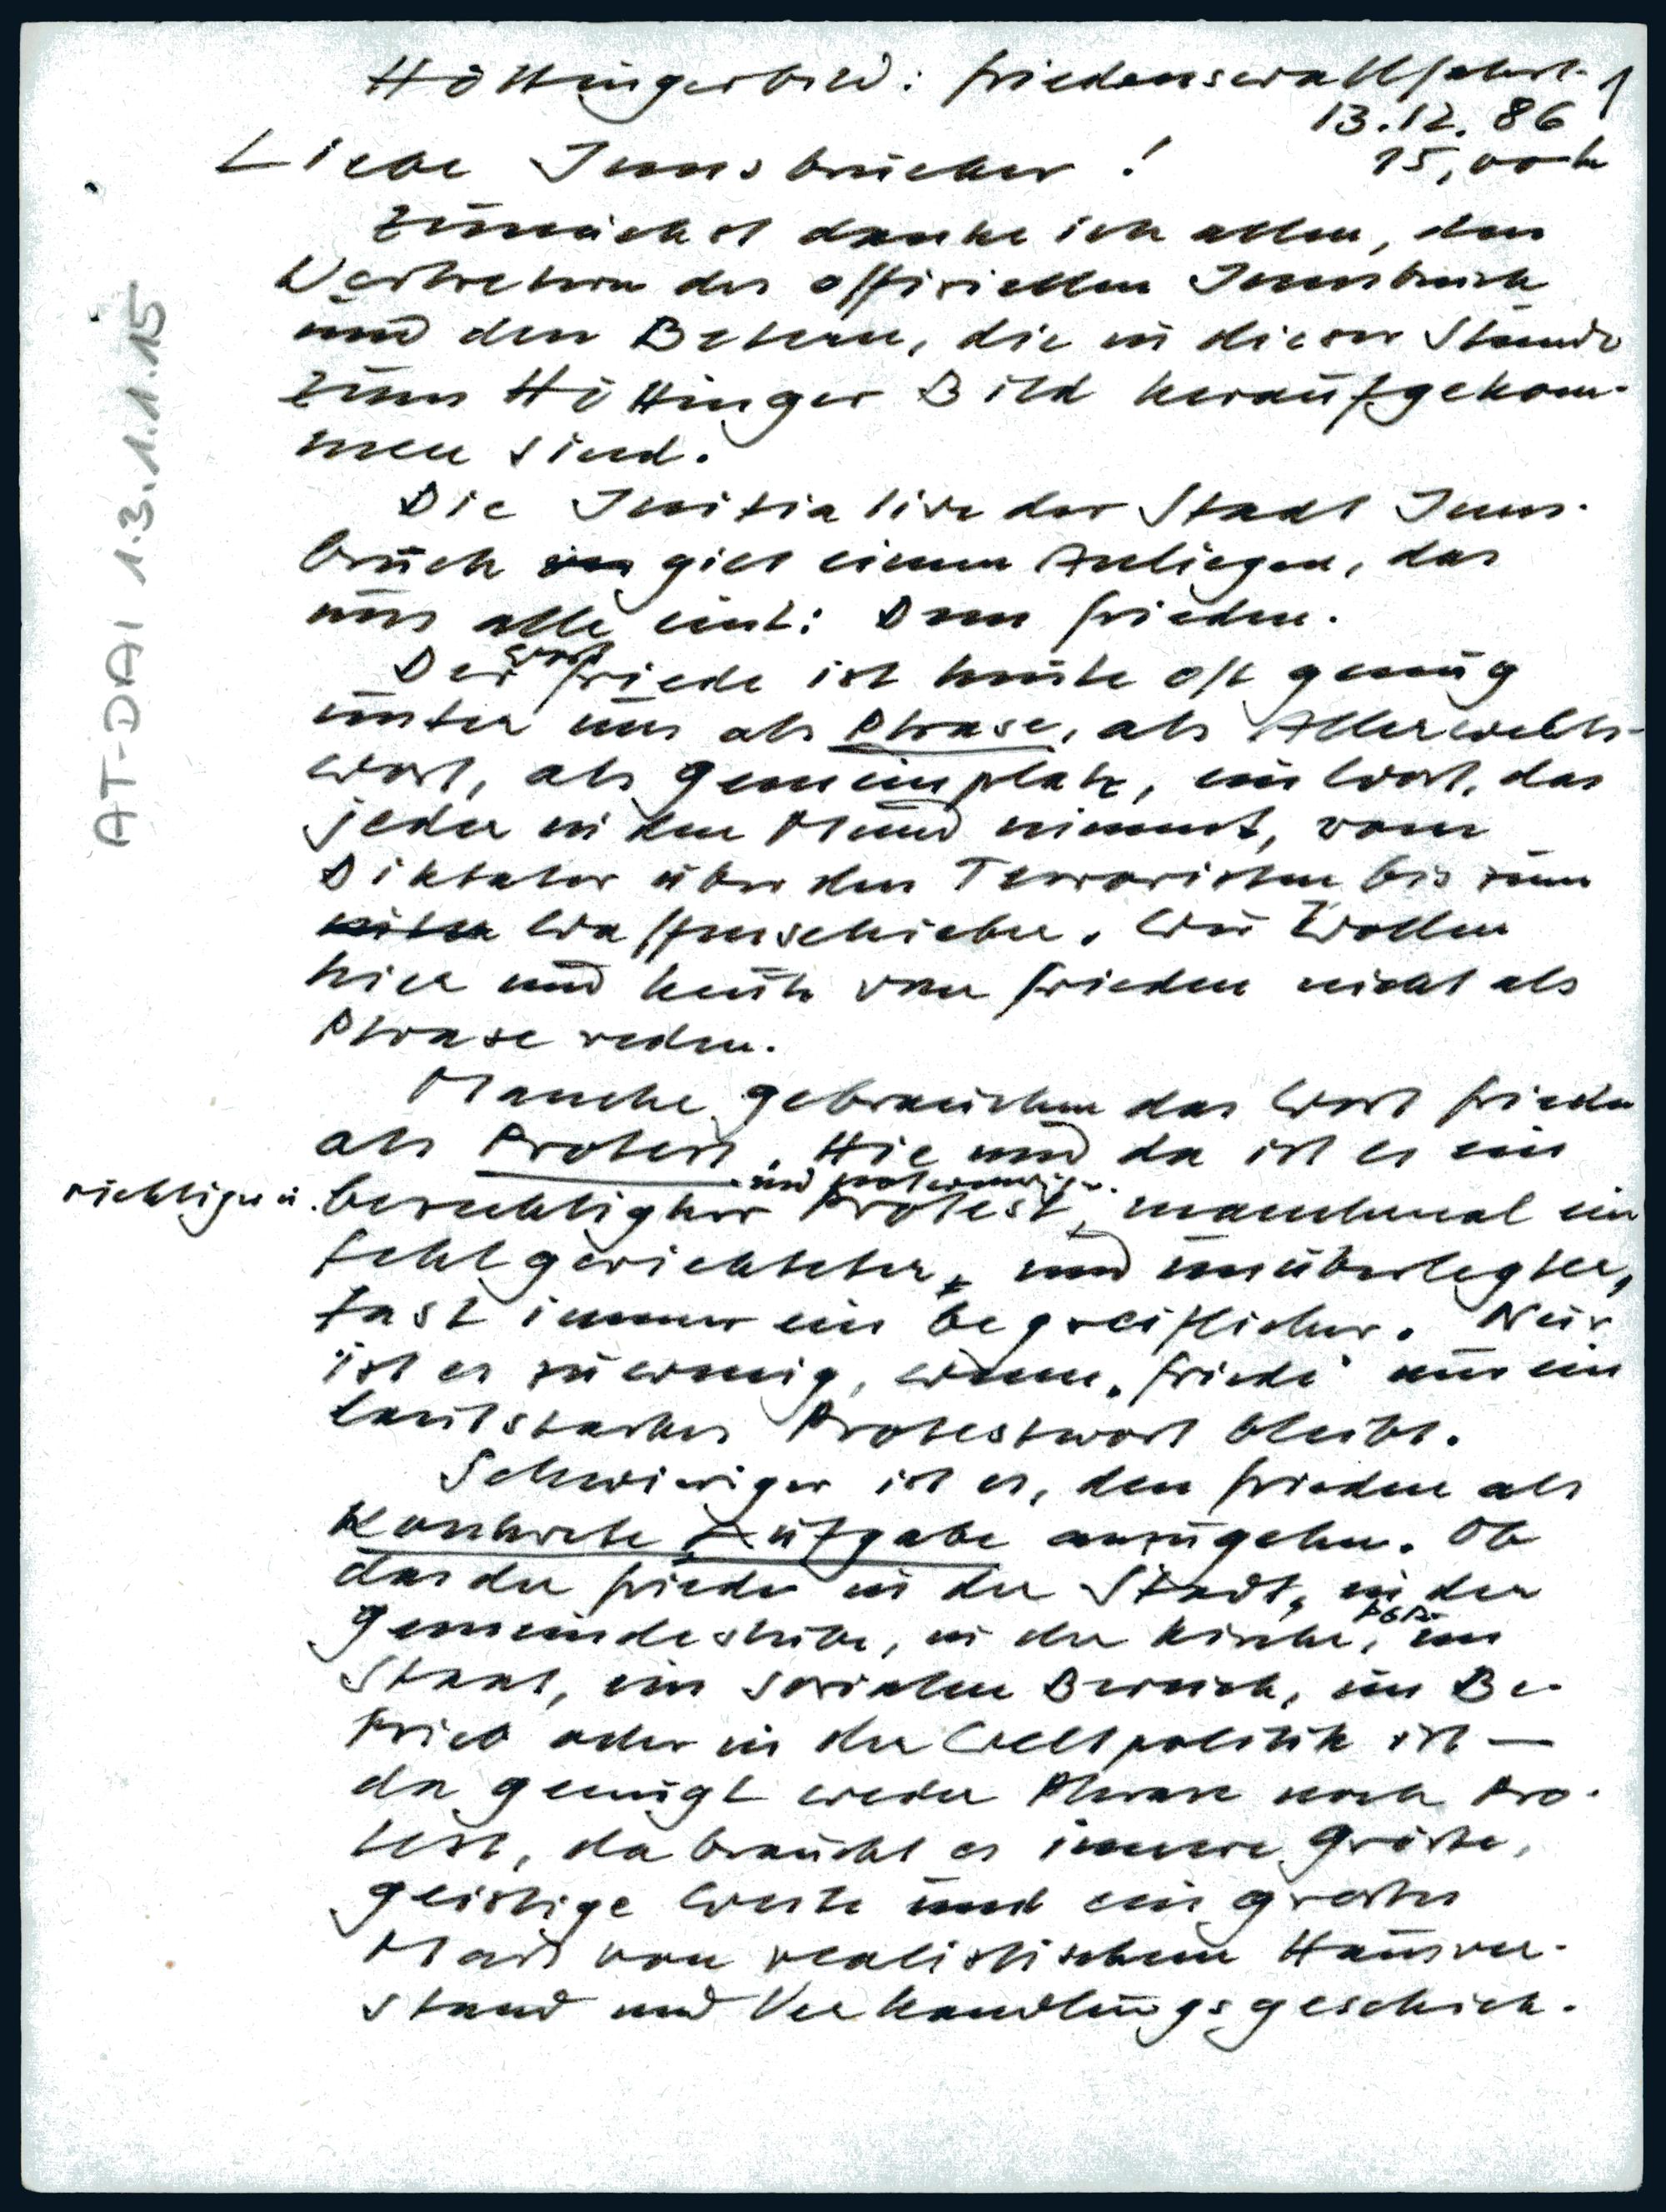 Höttingerbild: Friedenswallfahrt 1
13.12.86
15,00 h
Liebe Innsbrucker!
Zunächst danke ich allen, den
Vertretern des offiziellen Innsbruck
und den Betern, die in dieser Stunde
zum Höttinger Bild heraufgekom-
men sind.
Die Initiative der Stadt Inns-
bruck gilt einem Anliegen, das
uns alle eint: Dem Frieden.
Wort
Der Friede ist heute oft genug
unter uns als Phrase, als Allerwelts-
wort, als Gemeinplatz, ein Wort, das
jeder in den Mund nimmt, vom
Diktator über den Terroristen bis zum
Waffenschieber. Wir wollen
hier und heute vom Frieden nicht als
Phrase reden.
Manche gebrauchen das Wort Frieden
als Protest. Hie und da ist es ein
und
richtiger u. berechtigter Protest, manchmal ein
fehlgerichteter, und unüberlegter,
fast immer ein begreiflicher. Nur
ist es zu wenig, wenn „Friede" nur ein
lautstarkes Protestwort bleibt.
Schwieriger ist es, den Frieden als
konkrete Aufgabe anzugehen. Ob
das der Friede in der Stadt, in der
Gemeindestube, in der Kirche, im
Staat, im sozialen Bereich, im Be-
trieb oder in der Weltpolitik ist —
da genügt weder Phrase noch Pro-
test, da braucht es innere Größe,
geistige Werte und ein großes
Maß von realistischem Hausver-
stand und Verhandlungsgeschick.
AT-DAI 1.3.1.1.15